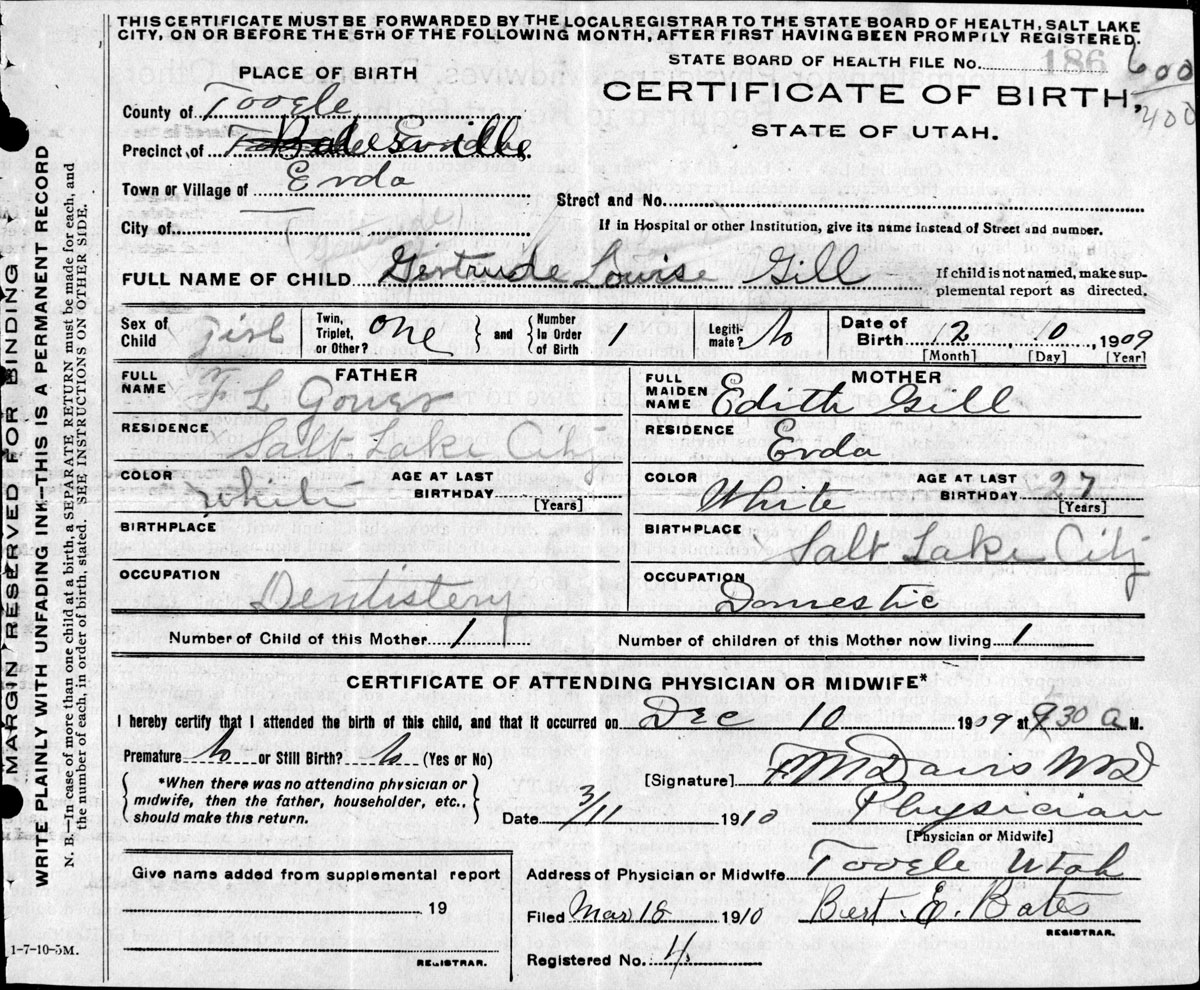 THIS CERTIFICATE MUST BE FORWARDED BY THE LOCAL REGISTRAR TO THE STATE BOARD OF HEALTH, SALT LAKE
CITY, ON OR BEFORE THE 5TH OF THE FOLLOWING MONTH, AFTER FIRST HAVING BEEN PROMPTLY REGISTERED.
STATE BOARD OF HEALTH FILE No. 186 600
400
CERTIFICATE OF BIRTH,
STATE OF UTAH.
PLACE OF BIRTH
County of Tooele
Precinct of
Town or Village of Erda
Street and No.
City of
If in Hospital or other Institution, give its name instead of Street and number.
FULL NAME OF CHILD Gertrude Louise Gill
If child is not named, make sup-
plemental report as directed.
Sex of Child girl Twin, Triplet, or Other? one and Number In Order of Birth 1 Legiti-mate? No Date of Birth 12 10 1909
[Month] [Day] [Year]
FATHER
FULL NAME F L Gower
RESIDENCE Salt Lake City
COLOR White AGE AT LAST BIRTHDAY [Years]
BIRTHPLACE
OCCUPATION Dentistery
MOTHER
FULL MAIDEN NAME Edith Gill
RESIDENCE Erda
COLOR White AGE AT LAST BIRTHDAY 27 [Years]
BIRTHPLACE Salt Lake City
OCCUPATION Domestic
Number of Child of this Mother 1 Number of children of this Mother now living 1
CERTIFICATE OF ATTENDING PHYSICIAN OR MIDWIFE*
I hereby certify that I attended the birth of this child, and that it occurred on Dec 10 1909 at 30 a M.
Premature No or Still Birth? No (Yes or No)
*When there was no attending physician or
midwife, then the father, householder, etc.,
should make this return.
[Signature] F M Davis MD
Date 3/11 1910 Physician
[Physician or Midwife]
Give name added from supplemental report
19
REGISTRAR.
Address of Physician or Midwife Tooele Utah
Filed Mar 18 1910 Bert. E. Bates
REGISTRAR.
Registered No. 4
1-7-10-5M.
MARGIN RESERVED FOR BINDING
WRITE PLAINLY WITH UNFADING INK—THIS IS A PERMANENT RECORD
N. B.—In case of more than one child at a birth, a SEPARATE RETURN must be made for each, and
the number of each, in order of birth, stated. SEE INSTRUCTIONS ON OTHER SIDE.